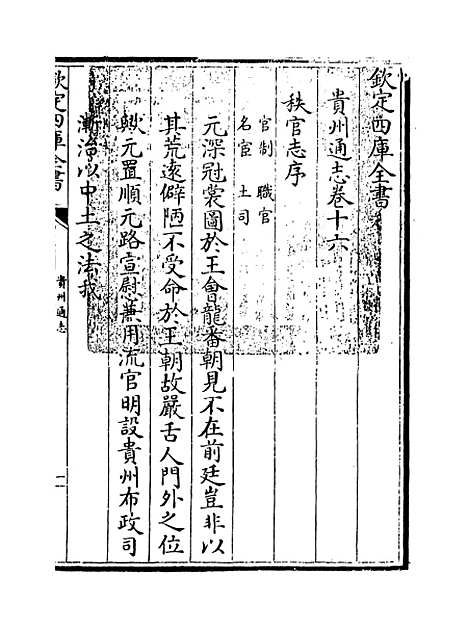 欽定四庫全書
貴州通志卷十六
秩官志序
官制 職官
名宦 土司
元深冠裳圖於王會龍番朝見不在前廷豈非以
其荒逺僻陋不受命於王朝故嚴舌人門外之位
歟元置順元路宣慰兼用流官明設貴州布政司
漸治以中土之法我
欽定四庫全書
貴州通志
一